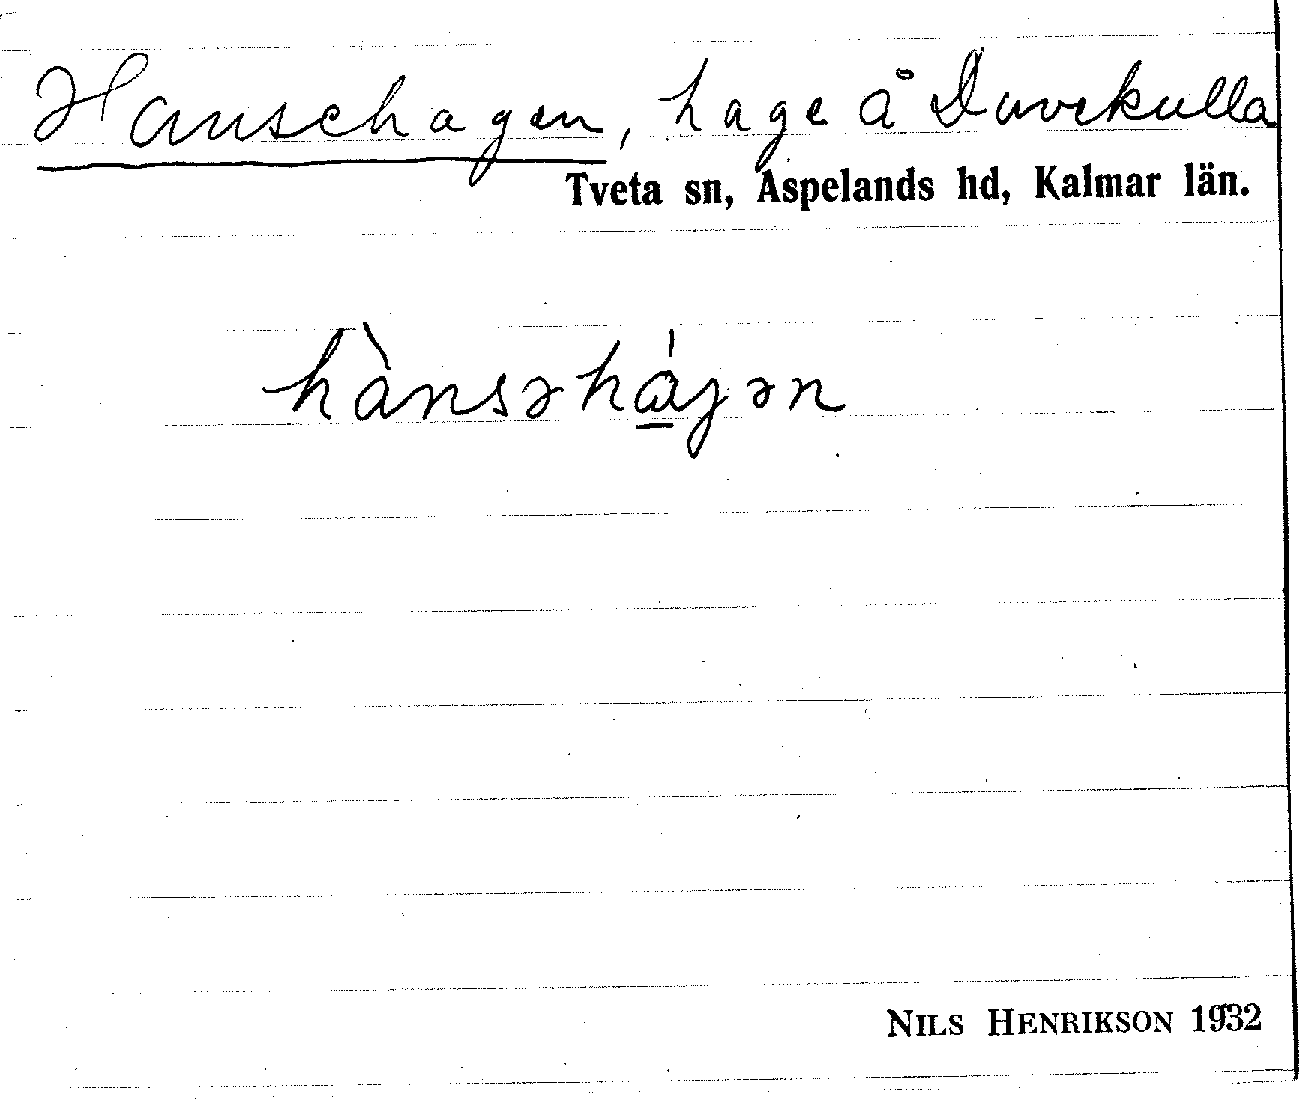 Hansehagen, hage å Duvekulla
Tveta sn, Aspelands hd, Kalmar län.
hànsəhág̲ən
NILS HENRIKSON 1932